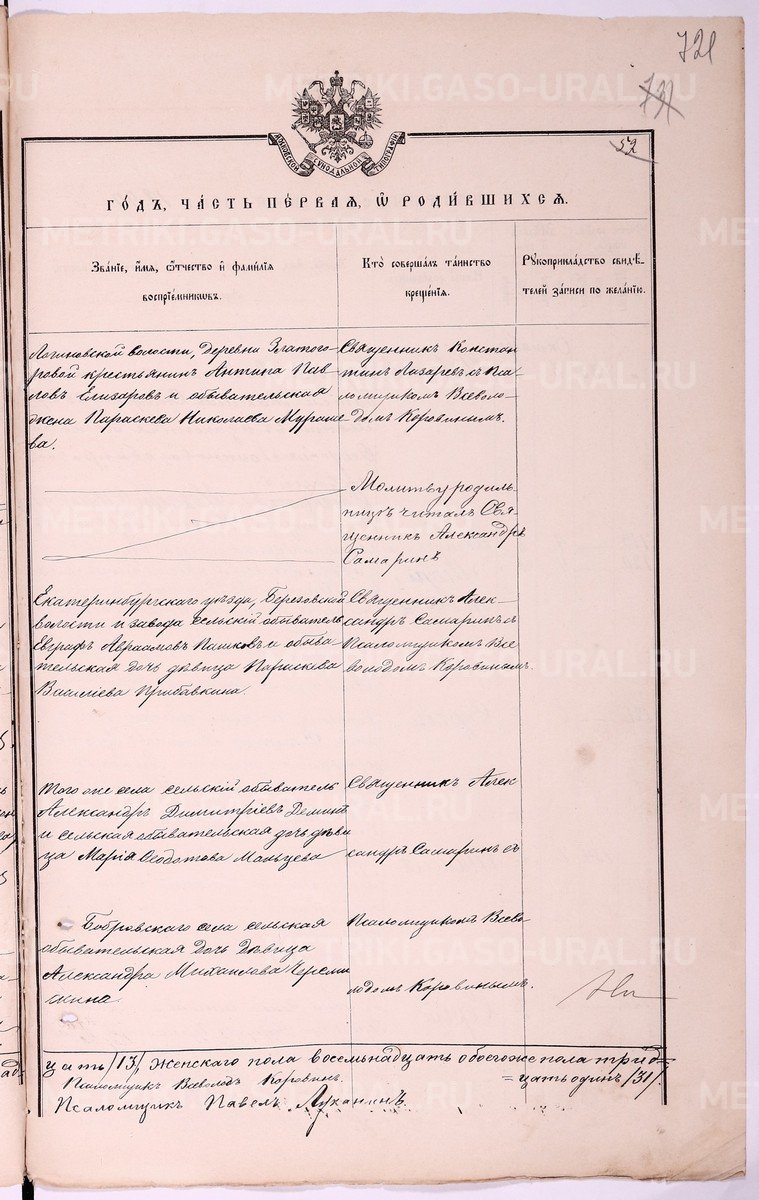 721
52
МОСКОВСКОЙ СѴНОДАЛЬНОЙ ТИПОГРАФІИ
ГО́ДЪ, ЧА́СТЬ ПЕ́РВАЯ, Ѽ РОДИ́ВШИХСЯ.
Зва́нїе, и҆́мя, ѻ҆́тчество и҆ фами́лїя
воспрїе́мниковъ.
Кто̀ соверша́лъ та́инство
креще́нїя.
Рꙋкоприкла́дство свидѣ́-
телей за́писи по жела́нїю.
Логиновской волости, деревни Златого-
ровой крестьянинъ Антипа Пав-
ловъ Елизаровъ и обывательская
жена Параскева Николаева Мураше
ва.
Священникъ Констан
тинъ Лазаревъ съ Пса
ломщикомъ Всеволо-
домъ Коровинымъ.
Молитву родиль-
ницѣ читалъ Свя
щенникъ Александръ
Самаринъ
Екатеринбургскаго уѣзда, Березовской
волости и завода сельскій обыватель
Евграфъ Авраамовъ Пашковъ и обыва
тельская дочь дѣвица Параскева
Василіева Прибавкина.
Священникъ Алек-
сандръ Самаринъ съ
Псаломщикомъ Все
володомъ Коровинымъ.
Того же села сельскій обыватель
Александръ Димитріевъ Деминъ
и сельская обывательская дочь дѣви
ца Марія Ѳеодотова Мальцева
Священникъ Алек
сандръ Самаринъ съ
Бобровскаго села сельская
обывательская дочь дѣвица
Александра Михаилова Черемн
ихина
Псаломщикомъ Всево
лодомъ Коровинымъ.
цать /13/, женскаго пола восемьнадцать обоего же пола трид-
Псаломщикъ Всеволодъ Коровинъ.
= цать одинъ /31/.
Псаломщикъ Павелъ Луканинъ
METRIKI.GASO-URAL.RU